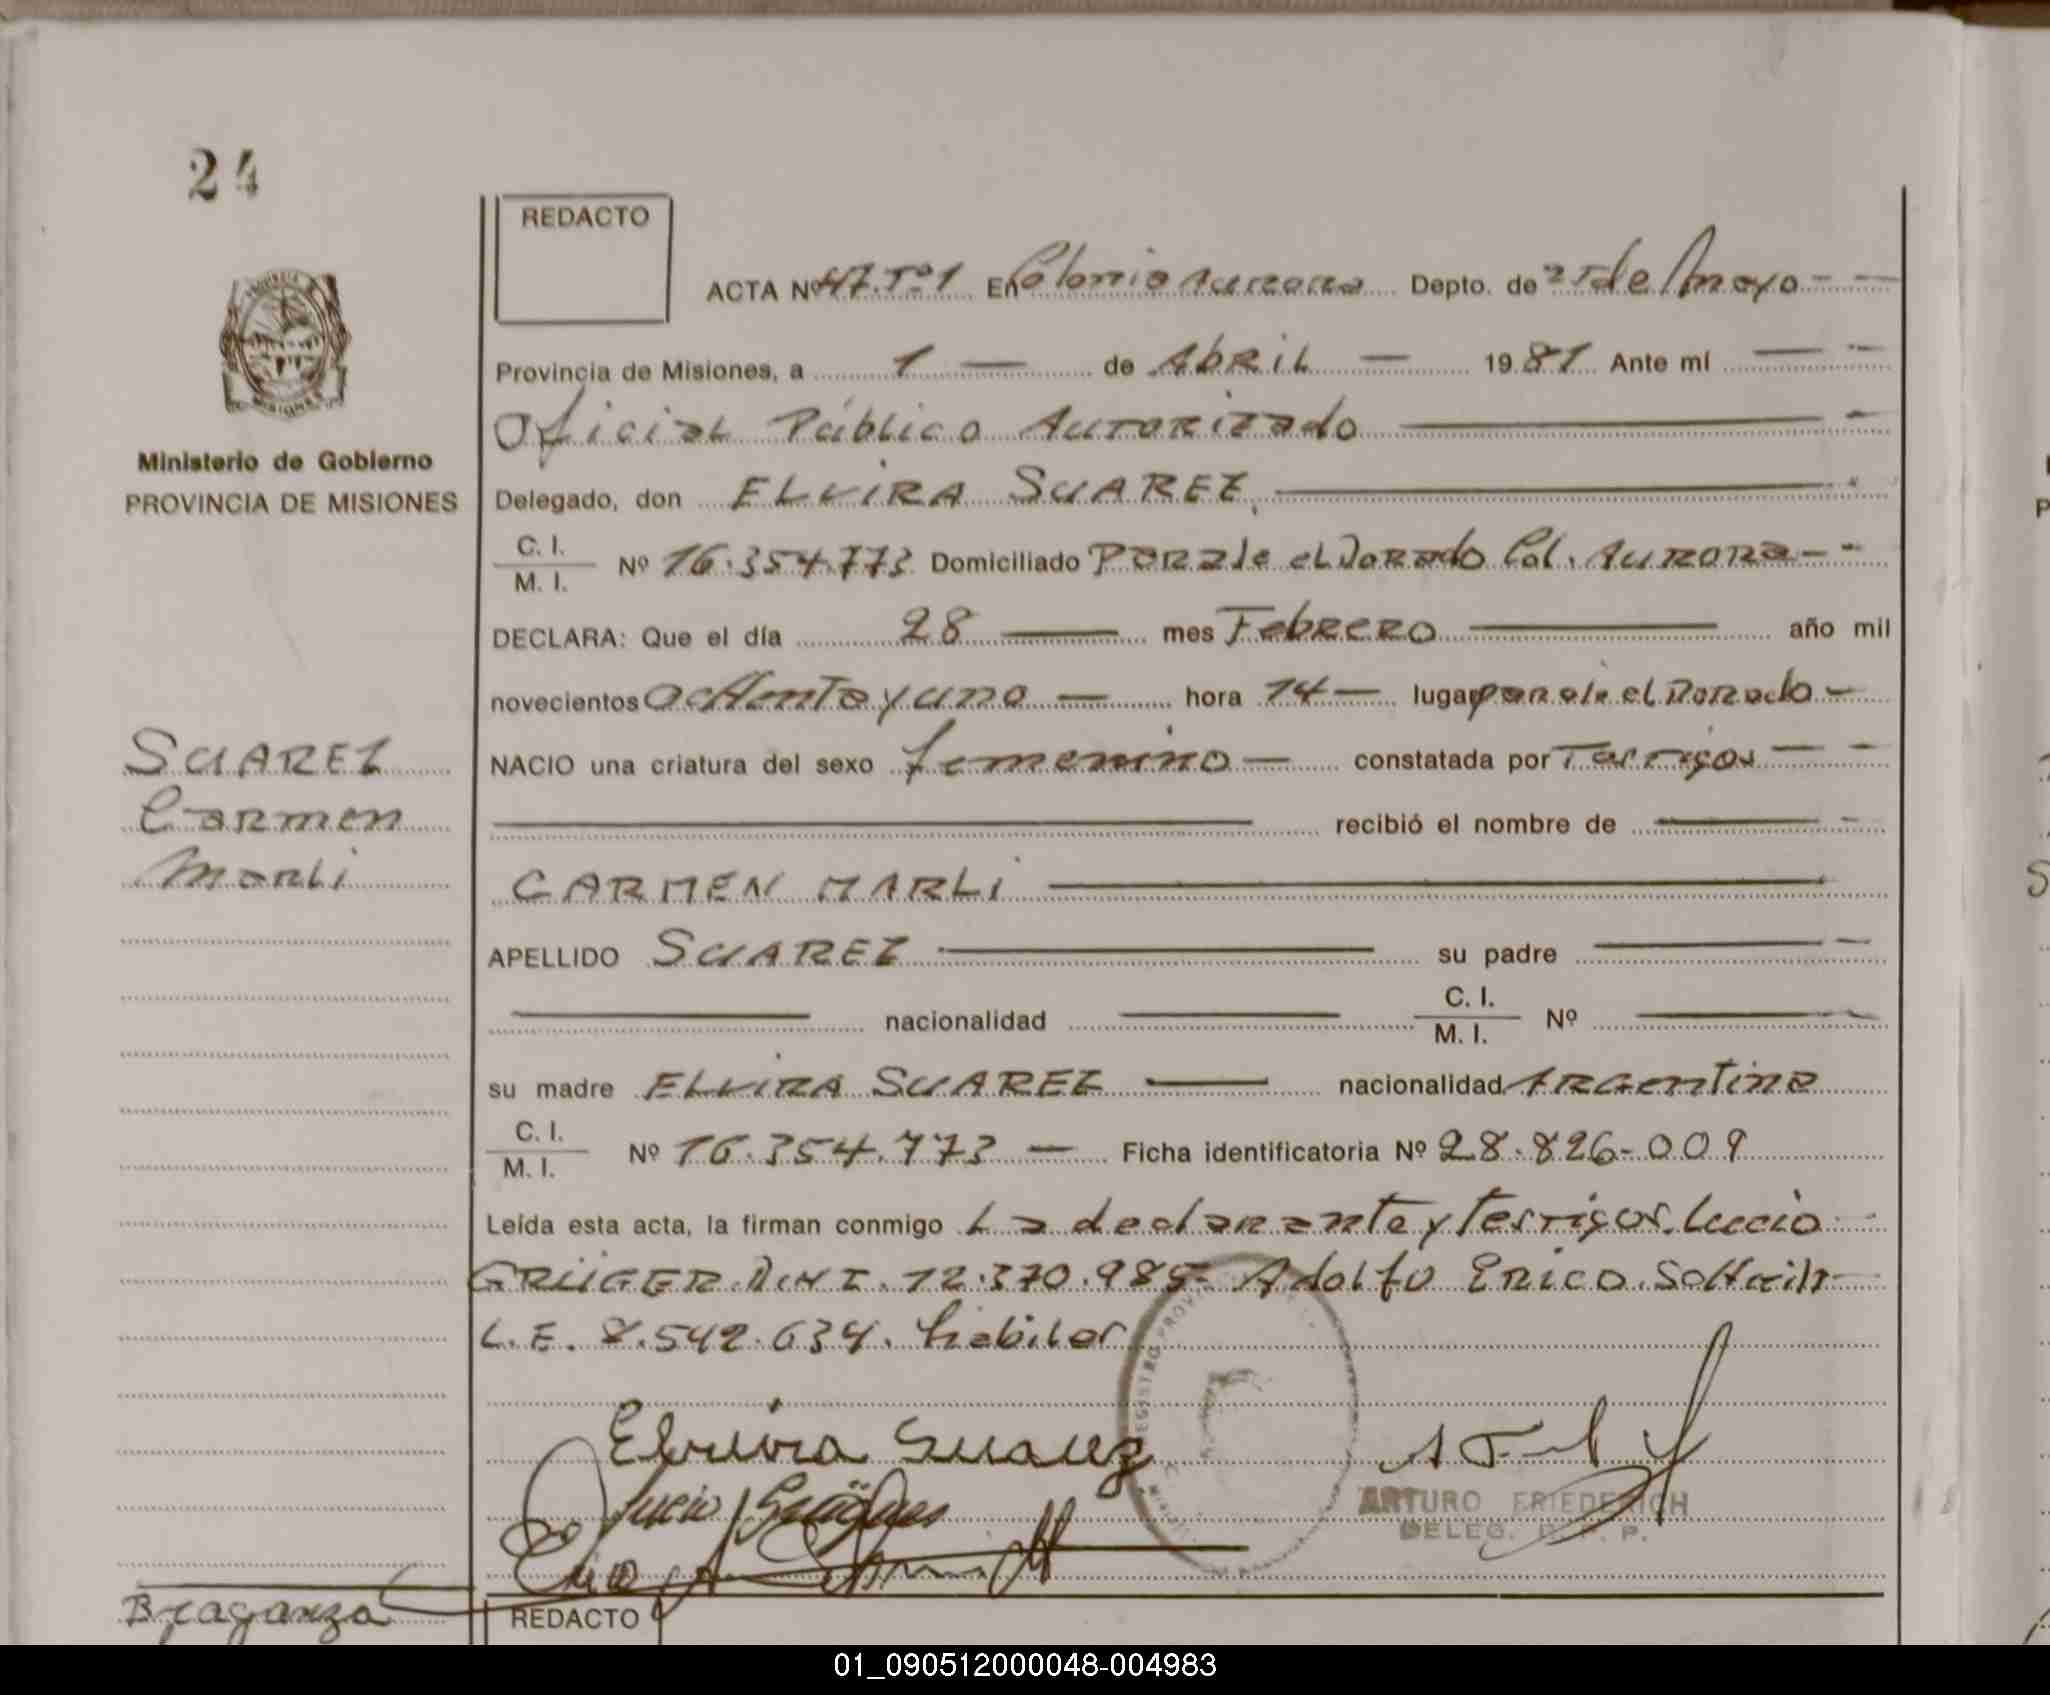 24
REDACTO
ACTA Nº 47. Tº 1 En Colonia Aurora Depto. de 25 de Mayo
Provincia de Misiones, a 1 de Abril 1981 Ante mí
Oficial Público Autorizado
Ministerio de Gobierno
PROVINCIA DE MISIONES
Delegado, don ELVIRA SUAREZ,
C. I.
M. I.
Nº 16.354.773 Domiciliado Parale el Dorado Col. Aurora
DECLARA: Que el día 28 mes Febrero año mil
novecientos ochenta y uno hora 14 lugar parale el Dorado
SUAREZ
Carmen
Marli
NACIO una criatura del sexo femenino constatada por Testigos
recibió el nombre de
CARMEN MARLI
APELLIDO SUAREZ su padre
nacionalidad C. I.
M. I. Nº
su madre ELVIRA SUAREZ nacionalidad Argentina
C. I.
M. I.
Nº 16.354.773 Ficha identificatoria Nº 28.826-009
Leída esta acta, la firman conmigo La declarante y Testigos. Lucio
GRÜGER D.N.I. 12.370.985- Adolfo Erico
L.E. 8.542.634. habiles
Elvira Suarez
Lucio Grüger
ARTURO FRIEDERICH
DELEG. R. P. P.
Braganza
REDACTO
01_090512000048-004983